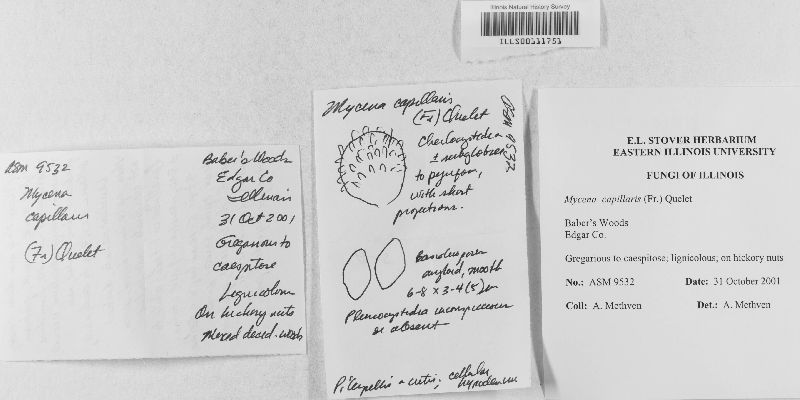 Illinois Natural History Survey
ILLS00111751
ASM 9532
Mycena
capillaris
(Fr) Quelet
Baber's Woods
Edgar Co
Illinois
31 Oct 2001
Gregarious to
caespitose
Lignicolous
On hickory nuts
Mixed decid. woods
Mycena capillaris
(Fr) Quelet
ASM 9532
Cheilocystidia
± subglobose
to pyriform,
with short
projections.
Basidiospores
amyloid, smooth
6-8 x 3-4(5) um
Pleurocystidia inconspicuous
or absent
Pileipellis a cutis; cellular
hypodermium
E.L. STOVER HERBARIUM
EASTERN ILLINOIS UNIVERSITY
FUNGI OF ILLINOIS
Mycena capillaris (Fr.) Quelet
Baber's Woods
Edgar Co.
Gregarious to caespitose; lignicolous, on hickory nuts
No.: ASM 9532 Date: 31 October 2001
Coll: A. Methven Det.: A. Methven